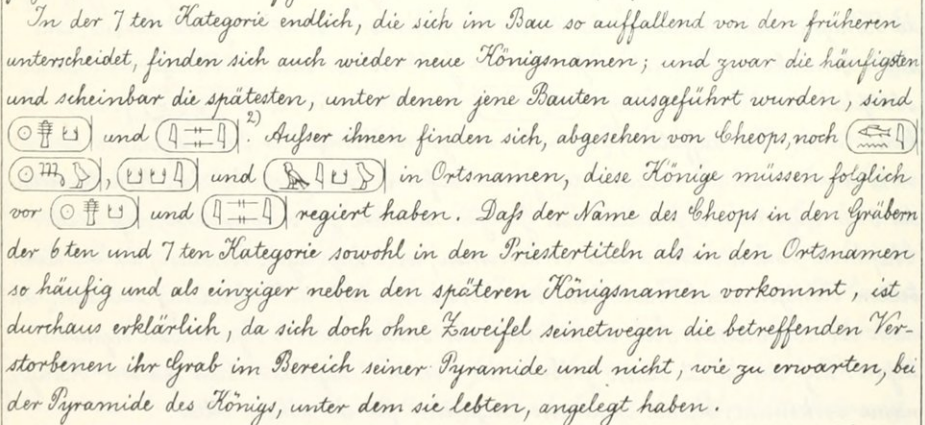 In der 7 ten Kategorie endlich, die sich im Bau so auffallend von den früheren
unterscheidet, finden sich auch wieder neue Königsnamen; und zwar die häufigsten
und scheinbar die spätesten, unter denen jene Bauten ausgeführt wurden, sind
𓍹𓇳𓊽𓂓𓍺 und 𓍹𓇋𓊃𓊃𓇋𓍺.²⁾ Aufser ihnen finden sich, abgesehen von Cheops, noch 𓍹𓆛𓈖𓇋𓍺
𓍹𓇳𓃃𓅱𓍺, 𓍹𓂓𓂓𓇋𓍺 und 𓍹𓅃𓇋𓂓𓅱𓍺 in Ortsnamen, diese Könige müssen folglich
vor 𓍹𓇳𓊽𓂓𓍺 und 𓍹𓇋𓊃𓊃𓇋𓍺 regiert haben. Dafs der Name des Cheops in den Gräbern
der 6 ten und 7 ten Kategorie sowohl in den Priestertiteln als in den Ortsnamen
so häufig und als einziger neben den späteren Königsnamen vorkommt, ist
durchaus erklärlich, da sich doch ohne Zweifel seinetwegen die betreffenden Ver-
storbenen ihr Grab im Bereich seiner Pyramide und nicht, wie zu erwarten, bei
der Pyramide des Königs, unter dem sie lebten, angelegt haben.